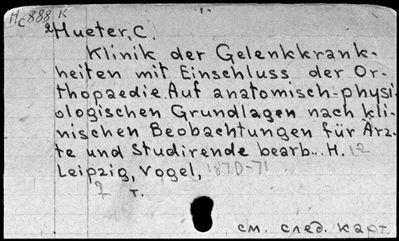 Hc 888 K
Hueter, C.
Klinik der Gelenkkrank-
heiten mit Einschluss der Or-
thopaedie. Auf anatomisch-physi-
ologischen Grundlagen nach kli-
nischen Beobachtungen für Ärz-
te und Studirende bearb... H. 12
Leipzig, Vogel, 1870-71
2 т.
см. след. карт.